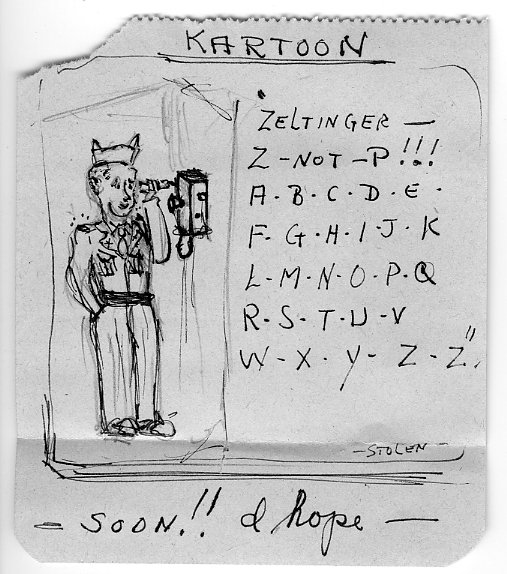 KARTOON
ZELTINGER —
Z - NOT - P!!!
A · B · C · D · E ·
F · G · H · I · J · K
L · M · N · O · P · Q
R · S · T · U · V
W - X - Y - Z - Z".
- STOLEN -
- SOON.!! I hope -